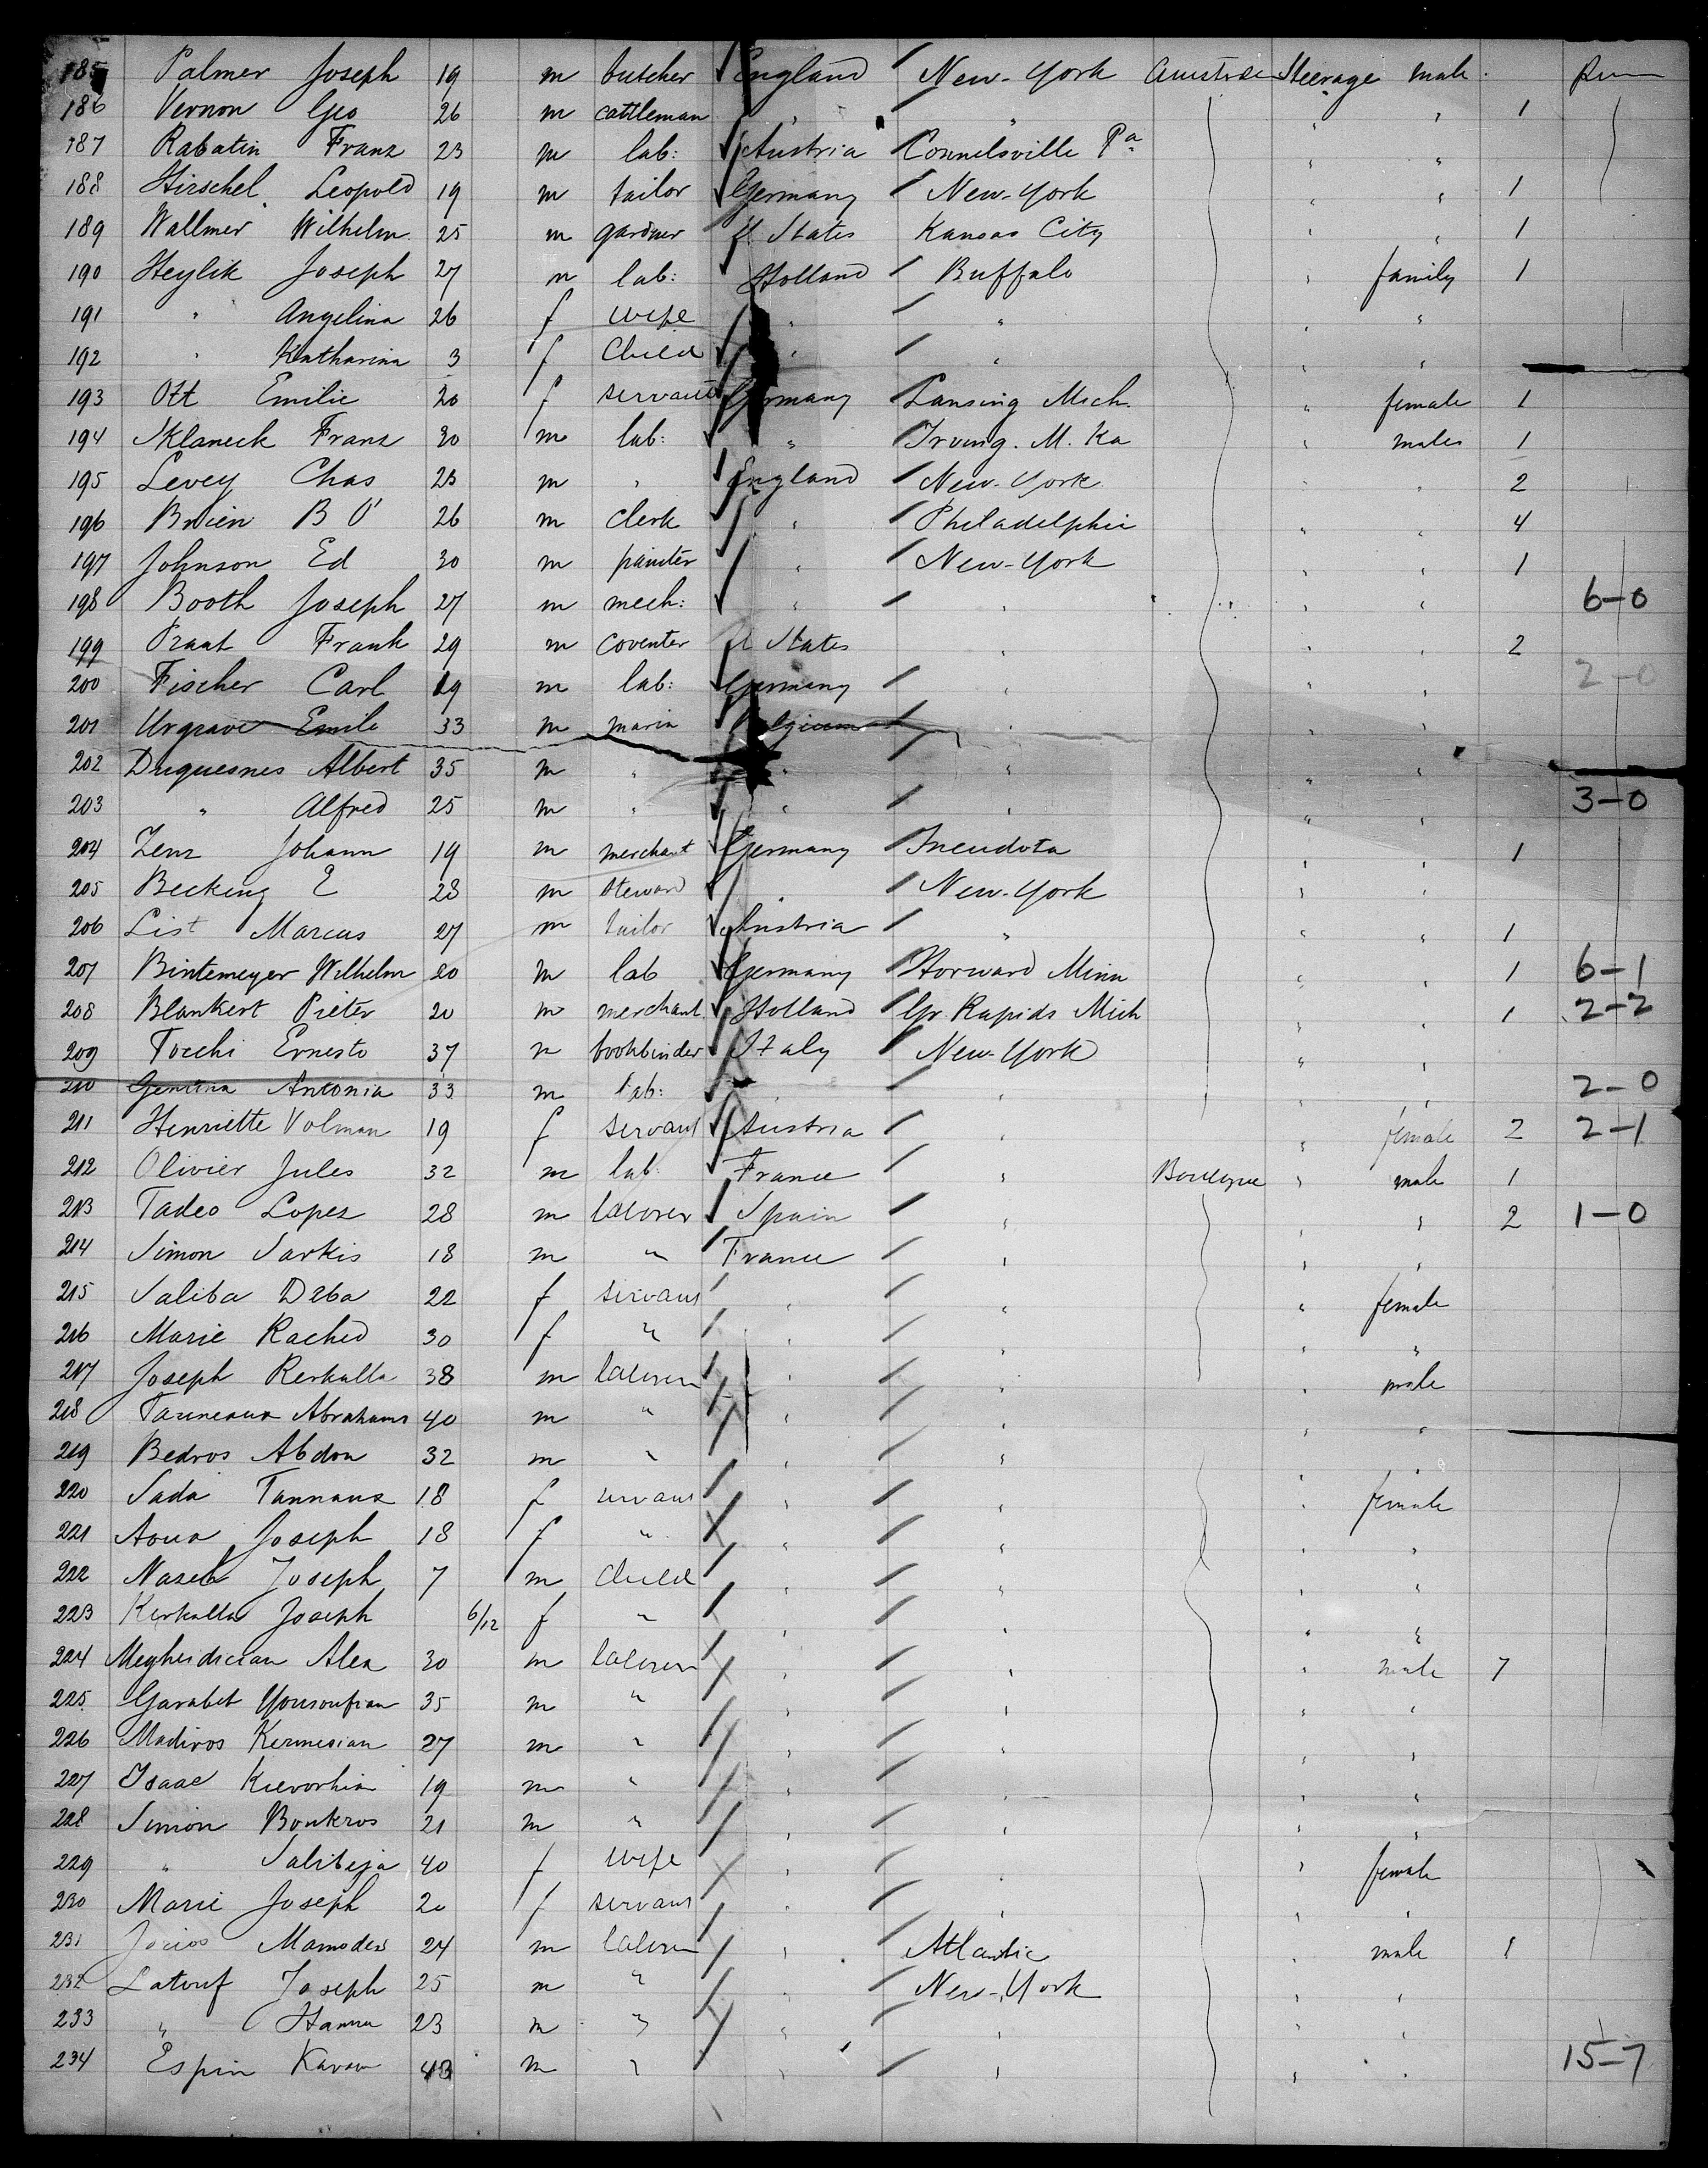 185 Palmer Joseph 19 m butcher England New-York Amsterd Steerage male
186 Vernon Geo 26 m cattleman " " " " 1
187 Rabatin Franz 23 m lab: Austria Connelsville Pa " "
188 Hirschel Leopold 19 m tailor Germany New-York " " 1
189 Wallmer Wilhelm 25 m gardner U. States Kansas City " " 1
190 Heylik Joseph 27 m lab: Holland Buffalo " family 1
191 " Angelina 26 f wife " " " "
192 " Katharina 3 f Child " " " "
193 Ott Emilie 20 f servant Germany Lansing Mich. " female 1
194 Sklaneck Franz 30 m lab: " Irving. M. Ka males 1
195 Levey Chas 23 m " England New-York " " 2
196 Brien B O' 26 m clerk " Philadelphia " " 4
197 Johnson Ed 30 m painter " New-York " " 1
198 Booth Joseph 27 m mech: " " " " 6-0
199 Praat Frank 29 m coventer U States " " " 2
200 Fischer Carl 19 m lab: Germany " " " 2-0
201 Urgrave Emile 33 m marin Belgium " " "
202 Duquesnes Albert 35 m " " " " "
203 " Alfred 25 m " " " " " 3-0
204 Zenz Johann 19 m merchant Germany " " 1
205 Becking E 28 m steward " New-York " "
206 List Marcus 27 m tailor Austria " " " 1
207 Bintemeyer Wilhelm 20 m lab Germany Horward Minn " " 1 6-1
208 Blankert Pieter 20 m merchant Holland Gr. Rapids Mich " " 1 2-2
209 Tocchi Ernesto 37 m bookbinder Italy New-York " "
210 Antonia 33 m lab: " " " " 2-0
211 Henriette Volman 19 f servant Austria " " female 2 2-1
212 Olivier Jules 32 m lab: France " Boulogne " male 1
213 Tadeo Lopez 28 m laborer Spain " " " 2 1-0
214 Simon Sarkis 18 m " France " " "
215 Saliba Deba 22 f servant " " " female
216 Marie Rached 30 f " " " " "
217 Joseph Rerkalla 38 m laborer " " " male
218 Abrahams 40 m " " " " "
219 Bedros Abdon 32 m " " " " "
220 Sada Tannans 18 f servant " " " female
221 Joseph 18 f " " " " "
222 Nazeb Joseph 7 m Child " " " "
223 Kerkalla Joseph 6/12 f " " " " "
224 Megherdician Alex 30 m laborer " " " male 7
225 Garabet Yousoufian 35 m " " " "
226 Madiros Kermesian 27 m " " " " "
227 Isaac Kievorkian 19 m " " " " "
228 Simon Boutros 21 m " " " " "
229 " 40 f wife " " " female
230 Marie Joseph 20 f servant " " " "
231 Jorios 24 m laborer " Atlantic " male 1
232 Latouf Joseph 25 m " " New-York " "
233 " Hanna 23 m " " " " "
234 Espin 43 m " " " " " 15-7